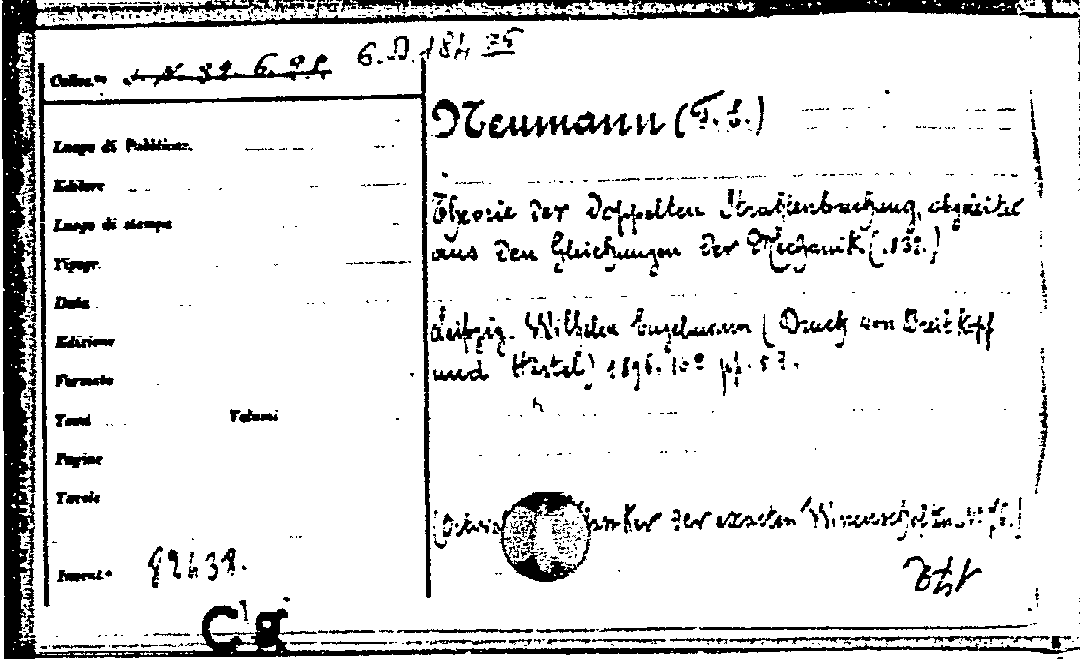 Colloc.ne 6. D. 184 75
Neumann (F. E.)
Luogo di Pubblicaz.
Editore
Luogo di stampa
Tipogr.
Data
Edizione
Formato
Tomi Volumi
Pagine
Tavole
Invent.° 82639.
Theorie der doppelten Strahlenbrechung, abgeleitet
aus den Gleichungen der Mechanik (1832.)
Leipzig. Wilhelm Engelmann (Druck von Breitkopf
und Härtel) 1896. 16° pp. 52.
der exacten Wissenschaften
Cg